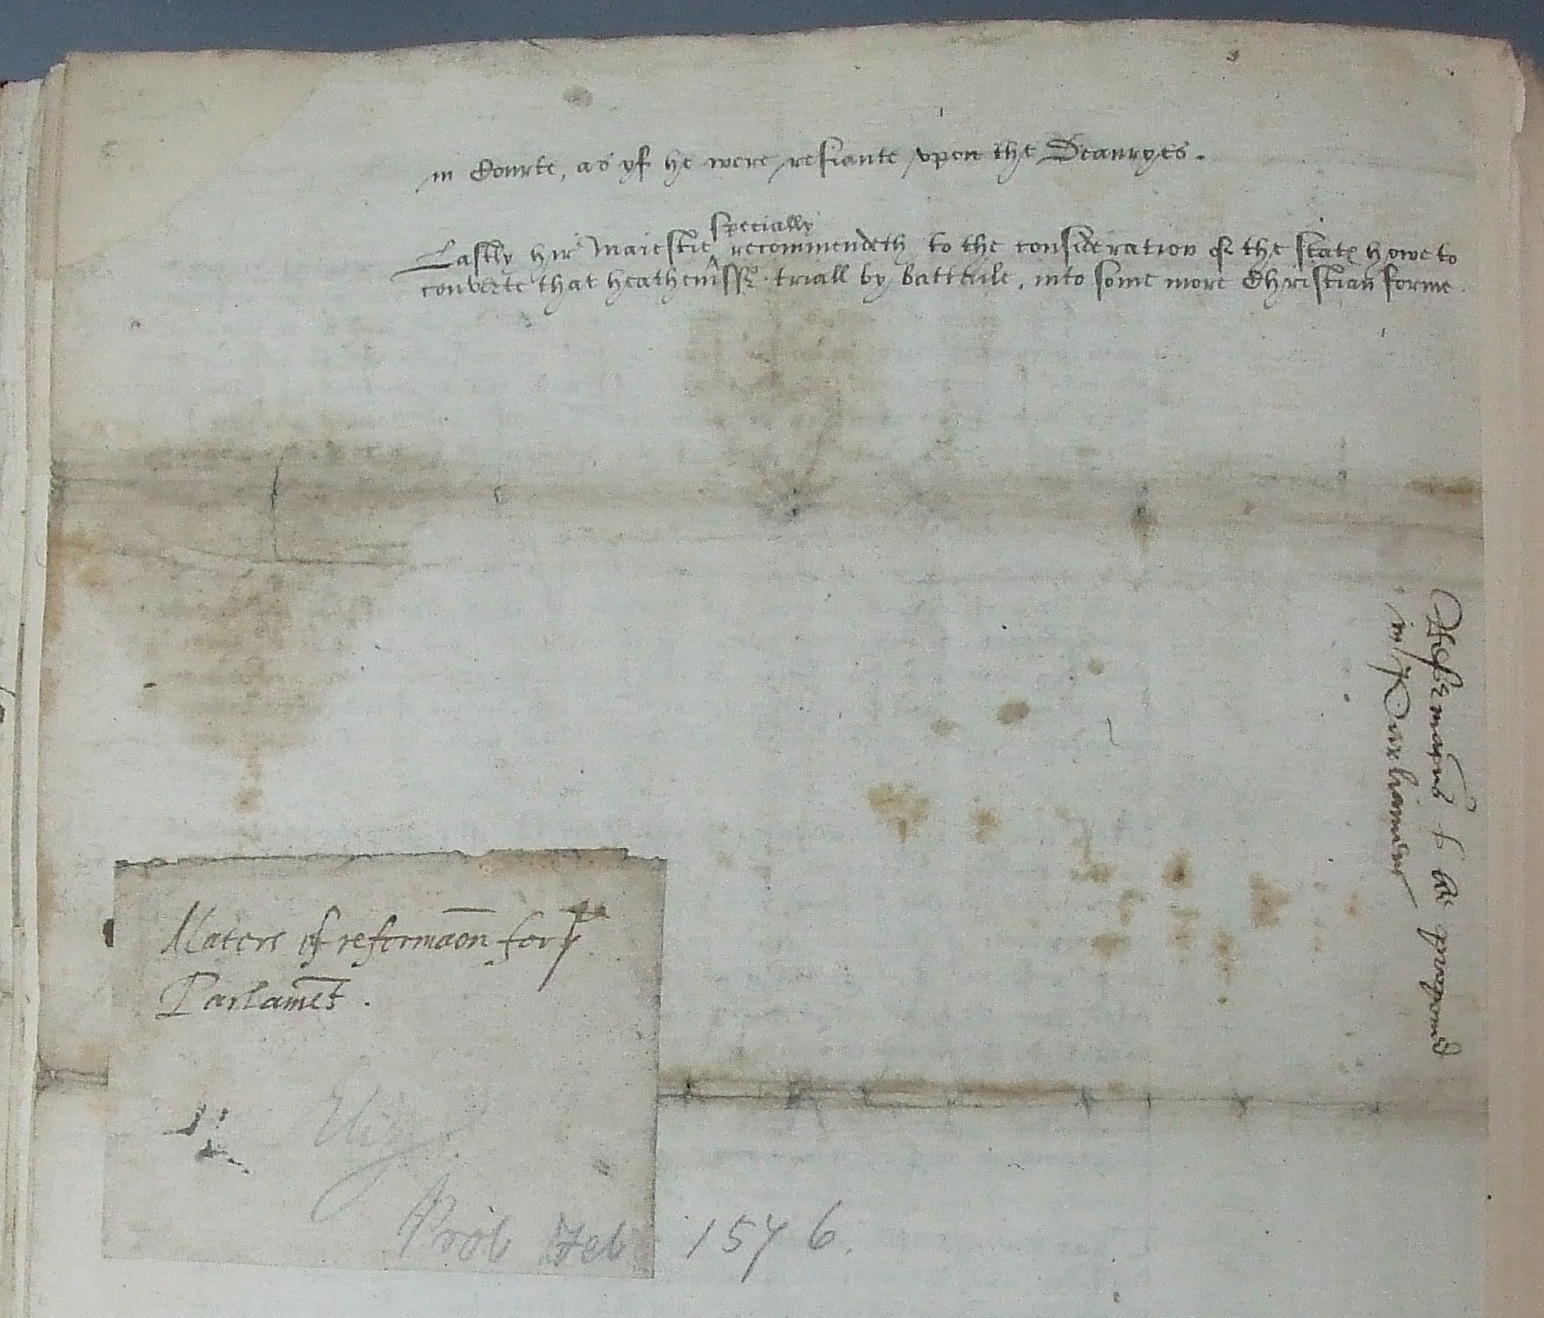 in Courte, as yf he were resiante vpon the Deanryes.
specially
Lastly hir Maiestie ^ recommendeth to the consideration of the state howe to
converte that heathenisshe triall by battaile, into some more Christian forme.
These matters to be propound
in Parliament
Maters of reformaon for ye
Parlamet.
Eliz
Prob Feb 1576.